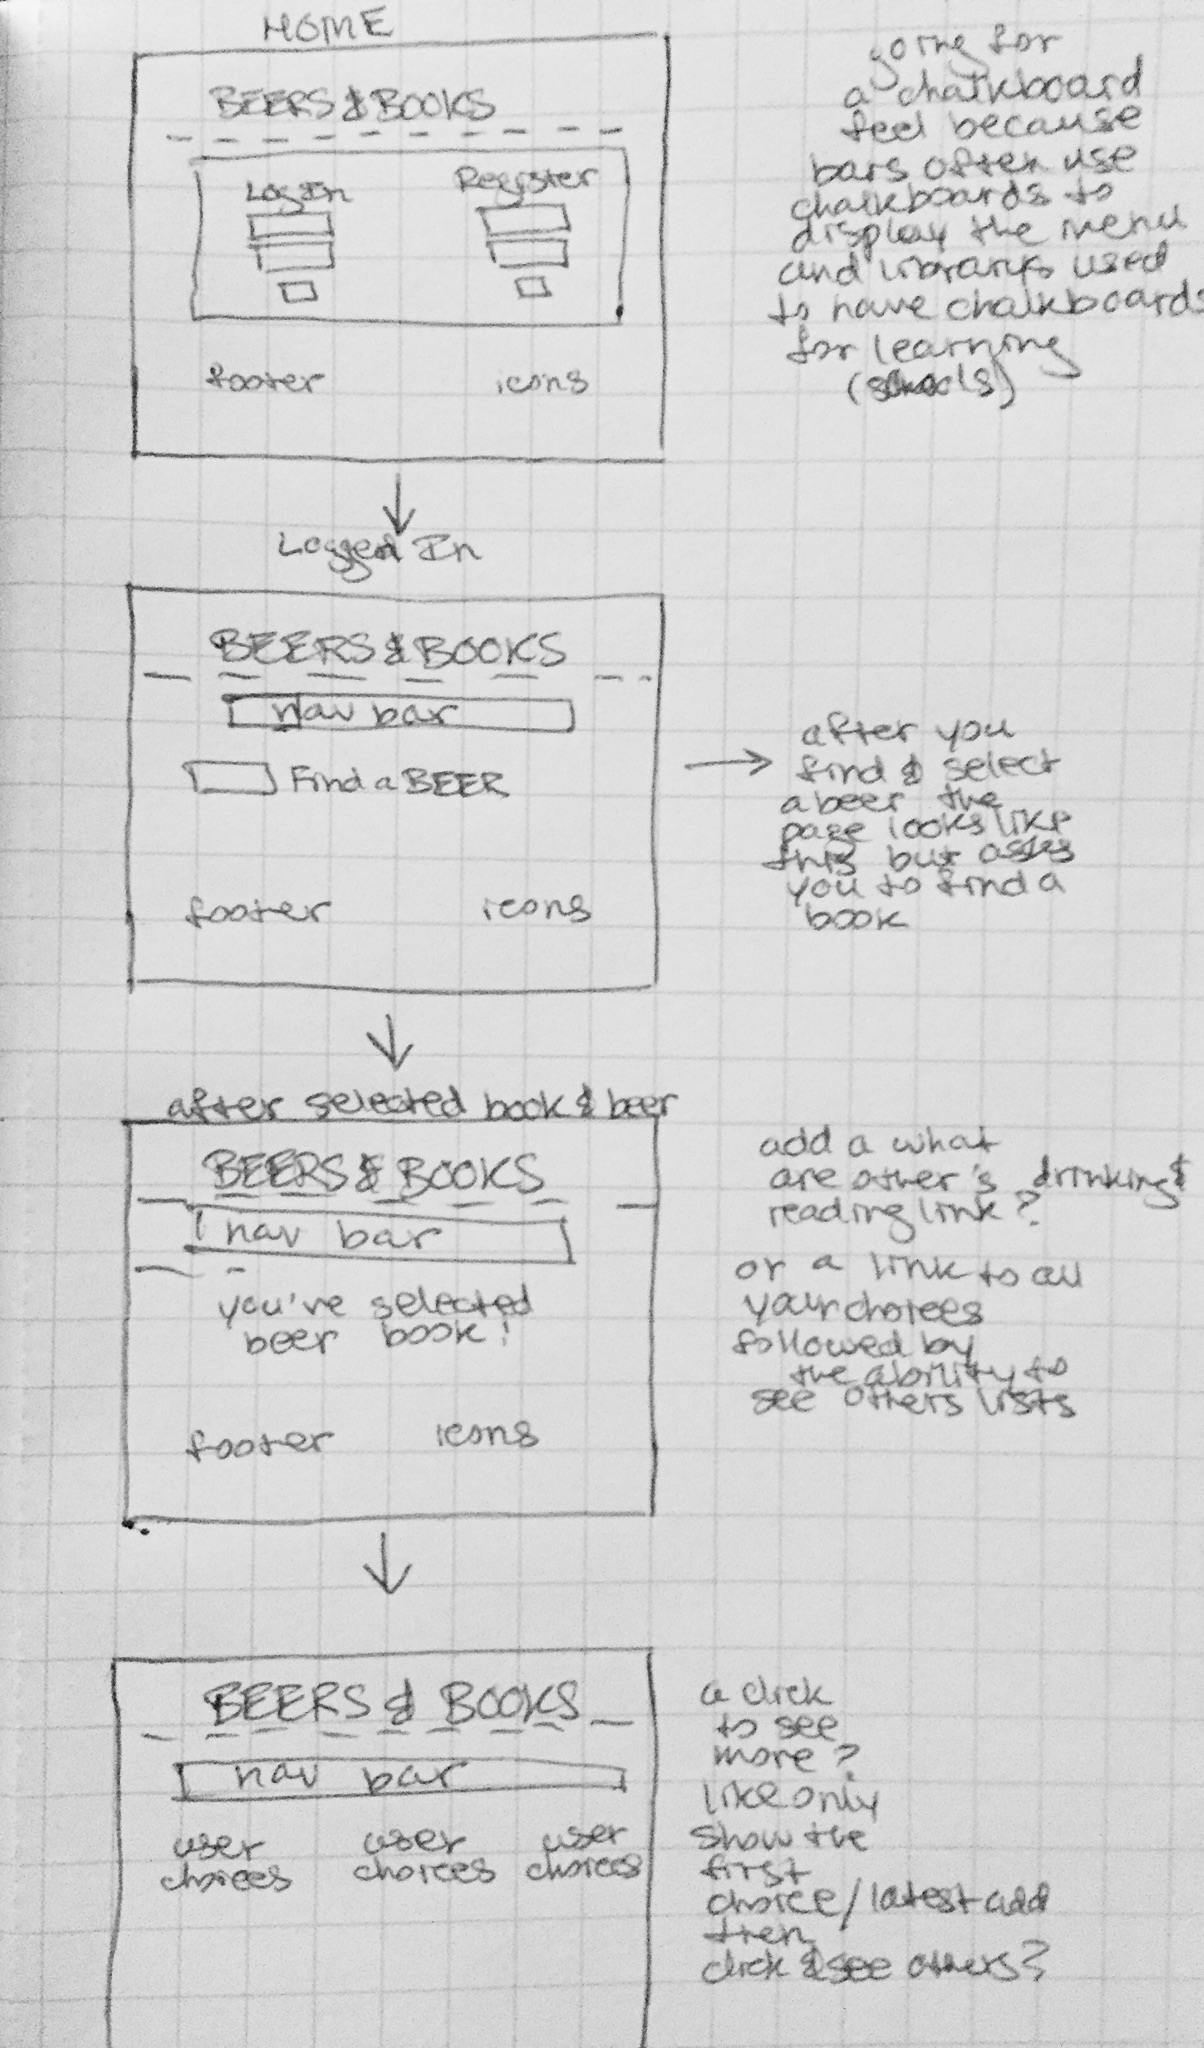 HOME
BEERS & BOOKS
Log In
Register
footer
icons
going for
a chalkboard
feel because
bars often use
chalkboards to
display the menu
and librarys used
to have chalkboards
for learning
(schools)
Logged In
BEERS & BOOKS
nav bar
Find a BEER
footer
icons
after you
find & select
a beer the
page looks like
this but asks
you to find a
book
after selected book & beer
BEERS & BOOKS
nav bar
you've selected
beer book!
footer
icons
add a what
are other's drinking &
reading link?
or a link to all
your choices
followed by
the ability to
see others lists
BEERS & BOOKS
nav bar
user
choices
user
choices
user
choices
a click
to see
more?
like only
show the
first
choice/latest add
then
click & see others?